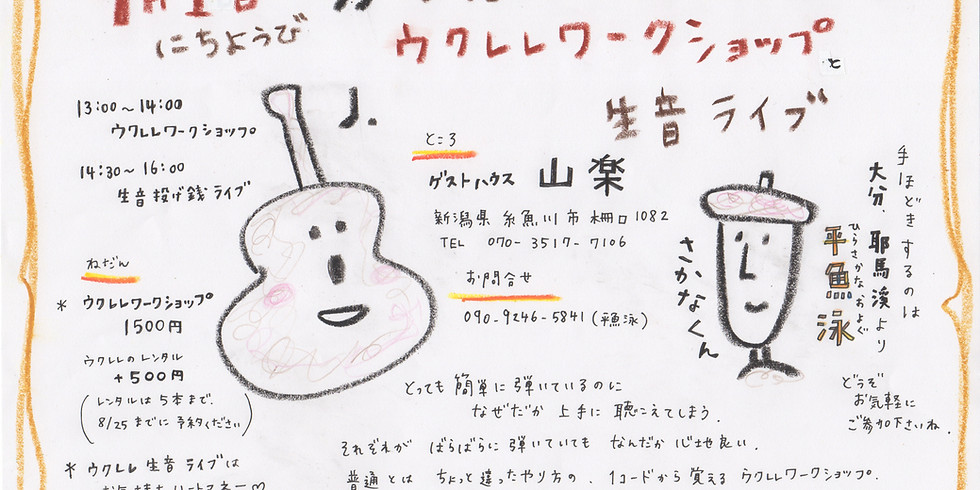 にちようび
ウクレレワークショップと
生音ライブ
13:00〜14:00
ウクレレワークショップ
14:30〜16:00
生音投げ銭ライブ
ねだん
* ウクレレワークショップ
1500円
ウクレレのレンタル
+500円
(レンタルは5本まで.
8/25までに予約ください)
* ウクレレ生音ライブは
ところ
ゲストハウス 山楽
新潟県糸魚川市柵口1082
TEL 070-3517-7106
お問合せ
090-9246-5841(平魚泳)
手ほどきするのは
大分、耶馬溪より
ひらさかなおよぐ
平魚泳
さかなくん
どうぞ
お気軽に
ご参加下さいね.
とっても簡単に弾いているのに
なぜだか上手に聴こえてしまう.
それぞれがばらばらに弾いていてもなんだか心地良い.
普通とはちょっと違ったやり方の、1コードから覚えるウクレレワークショップ.